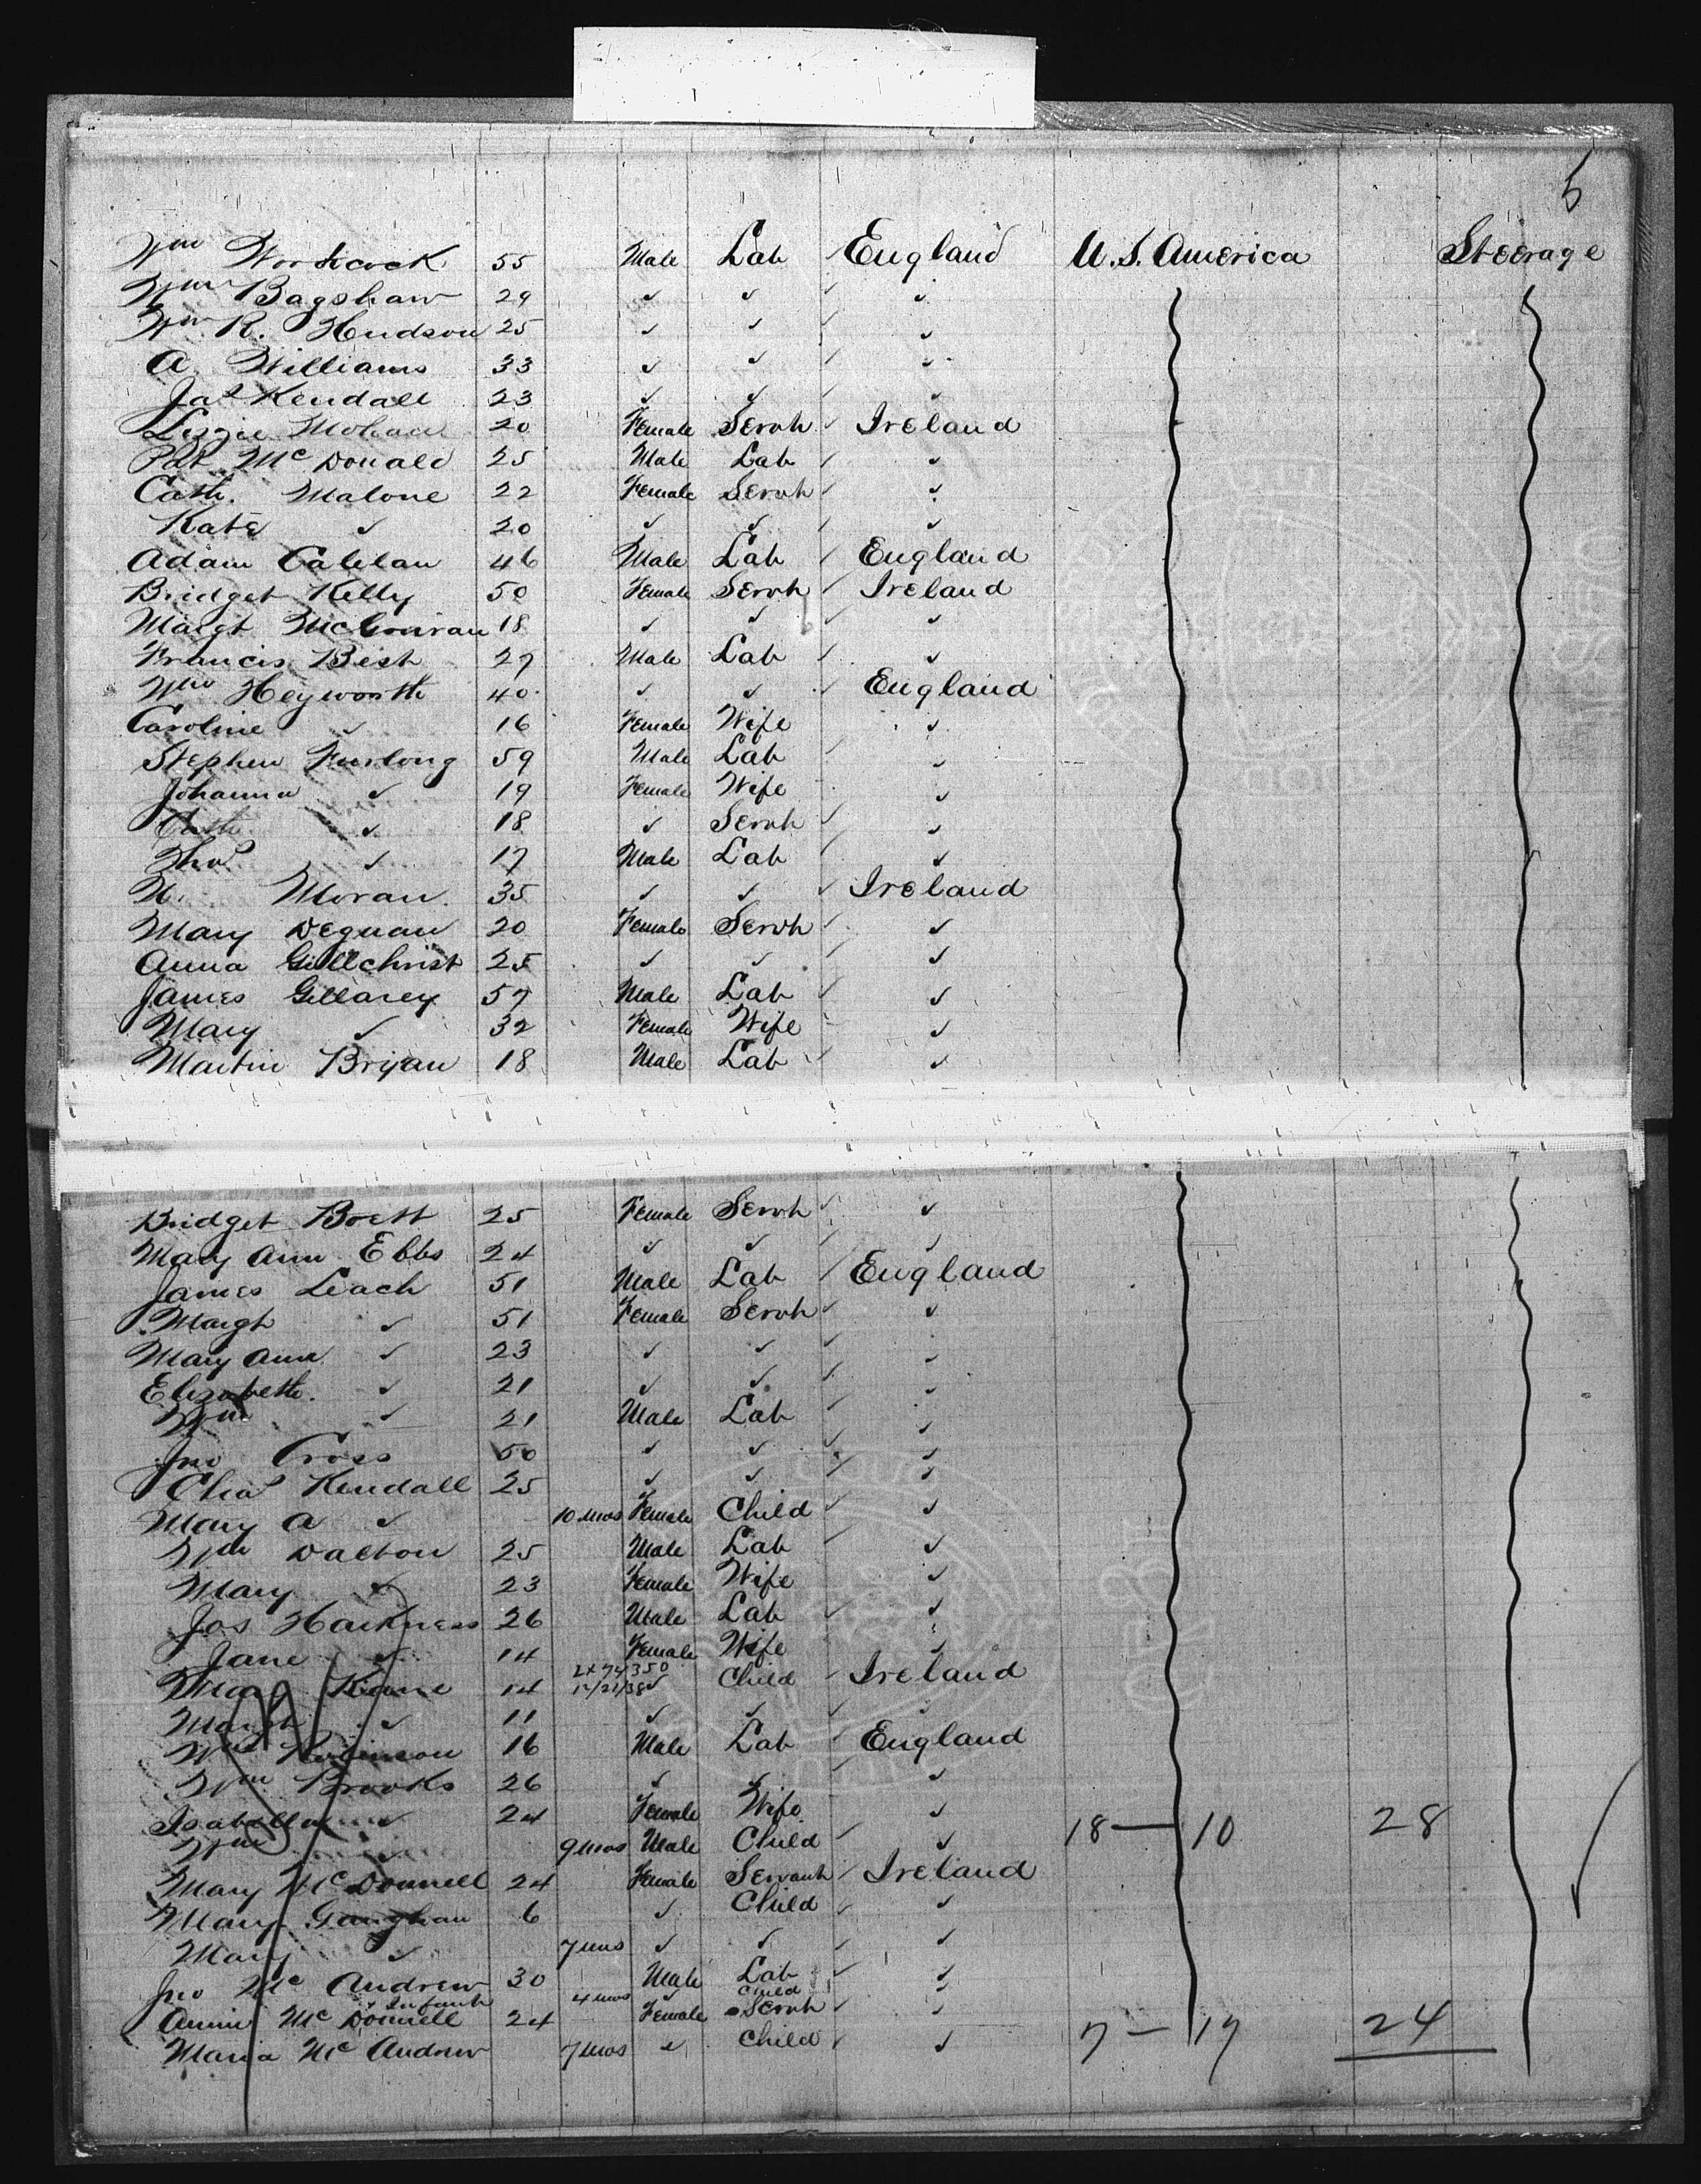 5
Wm Wordcock 55 Male Lab England U.S. America Steerage
Wm Bagshaw 29 ✓ ✓ ✓ ✓
Wm R. Hudson 25 ✓ ✓ ✓ ✓
A. Williams 33 ✓ ✓ ✓ ✓
Jas Kendall 23 ✓ ✓ ✓ ✓
Lizzie Mohan 20 Female Servt ✓ Ireland
Pat McDonald 25 Male Lab ✓ ✓
Cath. Malone 22 Female Servt ✓ ✓
Kate ✓ 20 ✓ ✓ ✓ ✓
Adam Callan 46 Male Lab ✓ England
Bridget Kelly 50 Female Servt ✓ Ireland
Margt McGowran 18 ✓ ✓ ✓ ✓
Francis Best 27 Male Lab ✓ ✓
Wm Heyworth 40 ✓ ✓ ✓ England
Caroline ✓ 16 Female Wife ✓
Stephen Furlong 59 Male Lab ✓ ✓
Johanna ✓ 19 Female Wife ✓
Cath ✓ 18 ✓ Servt ✓ ✓
Thos ✓ 17 Male Lab ✓ ✓
Moran 35 ✓ ✓ ✓ Ireland
Mary Degnan 20 Female Servt ✓ ✓
Anna Gillchrist 25 ✓ ✓ ✓ ✓
James Gillarey 57 Male Lab ✓ ✓
Mary ✓ 32 Female Wife ✓
Martin Bryan 18 Male Lab ✓ ✓
Bridget Brett 25 Female Servt ✓ ✓
Mary Ann Ebbs 24 ✓ ✓ ✓ ✓
James Leach 51 Male Lab ✓ England
Margt ✓ 51 Female Servt ✓ ✓
Mary Ann ✓ 23 ✓ ✓ ✓ ✓
Elizabeth ✓ 21 ✓ ✓ ✓ ✓
Wm ✓ 21 Male Lab ✓ ✓
Jno Cross 50 ✓ ✓ ✓ ✓
Chas Kendall 25 ✓ ✓ ✓ ✓
Mary A ✓ 10 mos Female Child ✓ ✓
Wm Dalton 25 Male Lab ✓ ✓
Mary ✓ 23 Female Wife ✓
Jos Harkness 26 Male Lab ✓ ✓
Jane ✓ 14 Female Wife ✓
Mary Kane 14 ✓ Child ✓ Ireland
Margt ✓ 11 ✓ ✓ ✓ ✓
Wm Robinson 16 Male Lab ✓ England
Wm Brooks 26 ✓ ✓ ✓ ✓
Isabella ✓ 24 Female Wife ✓
Wm ✓ 9 mos Male Child ✓ ✓ 18 — 10 28
Mary McDonnell 24 Female Servant ✓ Ireland
Mary Gaughan 6 ✓ Child ✓ ✓
Mary ✓ 7 mos ✓ ✓ ✓ ✓
Jno McAndrew 30 Male Lab ✓ ✓
✓ Infant 4 mos ✓ Child ✓
Annie McDonnell 24 Female Servt ✓ ✓
Maria McAndrew 7 mos ✓ Child ✓ ✓ 7 — 17 24